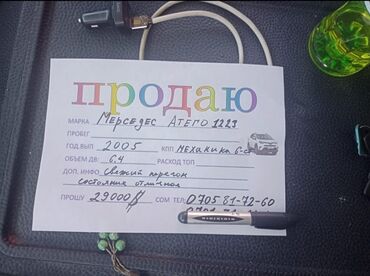 продаю
МАРКА Мерседес Атего 1223
ПРОБЕГ
ГОД.ВЫП 2005 КПП МЕХАНИКА 6-с
ОБЪЕМ ДВ: 6.4 РАСХОД ТОП
ДОП. ИНФО Свежий перегон
состояние отличное
ПРОШУ 29000$ СОМ ТЕЛ: 0705 81-72-60